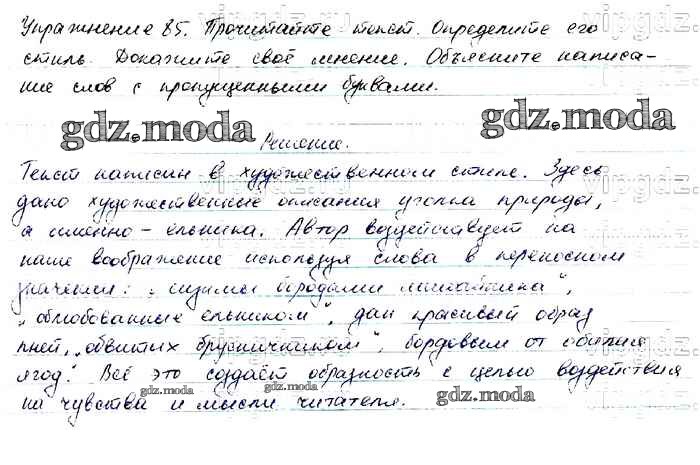 Упражнение 85. Прочитайте текст. Определите его
стиль. Докажите своё мнение. Объясните написа-
ние слов с пропущенными буквами.
gdz.moda gdz.moda
Решение.
Текст написан в художественном стиле. Здесь
дано художественные описания уголка природы,
а именно - ельника. Автор воздействует на
наше воображение используя слова в переносном
значении: „сизыми бородами лишайника",
„облюбованные ельником", дан красивый образ
пней, „обвитых брусничником", бордовым от обилия
ягод". Всё это создаёт образность с целью воздействия
gdz.moda gdz.moda gdz.moda
на чувства и мысли читателя.
vipgdz.ru